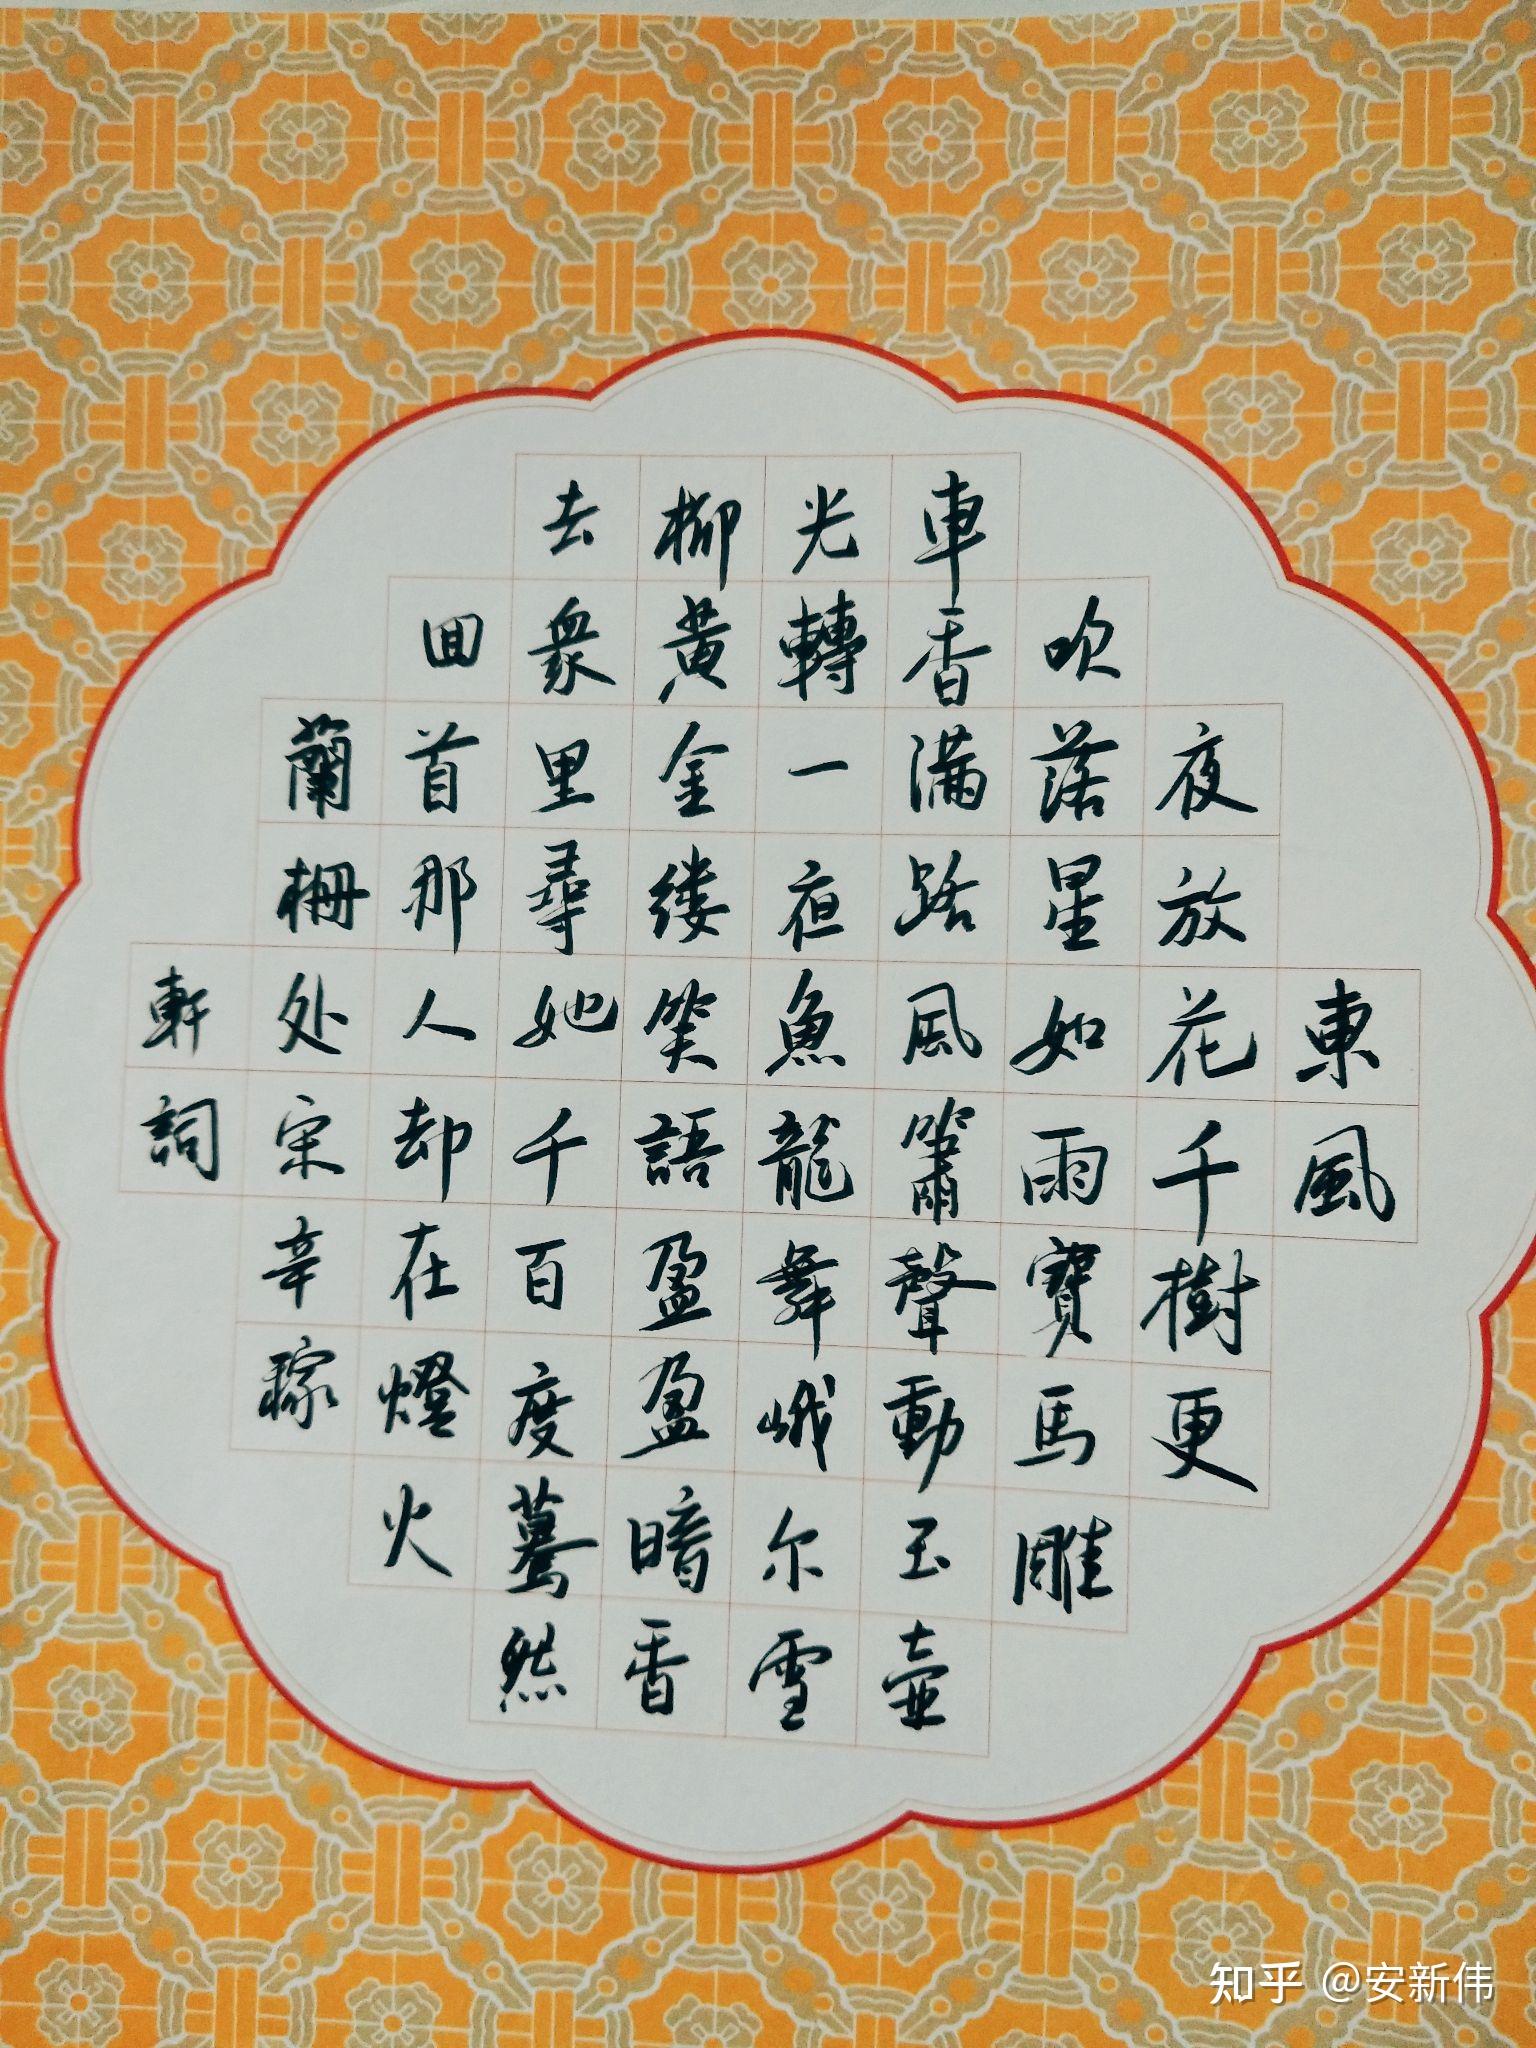 東風
夜放花千樹更
吹落星如雨寶馬雕
車香满路風簫聲動玉壺
光轉一夜魚龍舞峨尔雪
柳黄金缕笑語盈盈暗香
去衆里尋她千百度驀然
回首那人却在燈火
蘭栅处宋辛稼
軒詞
知乎 @安新伟